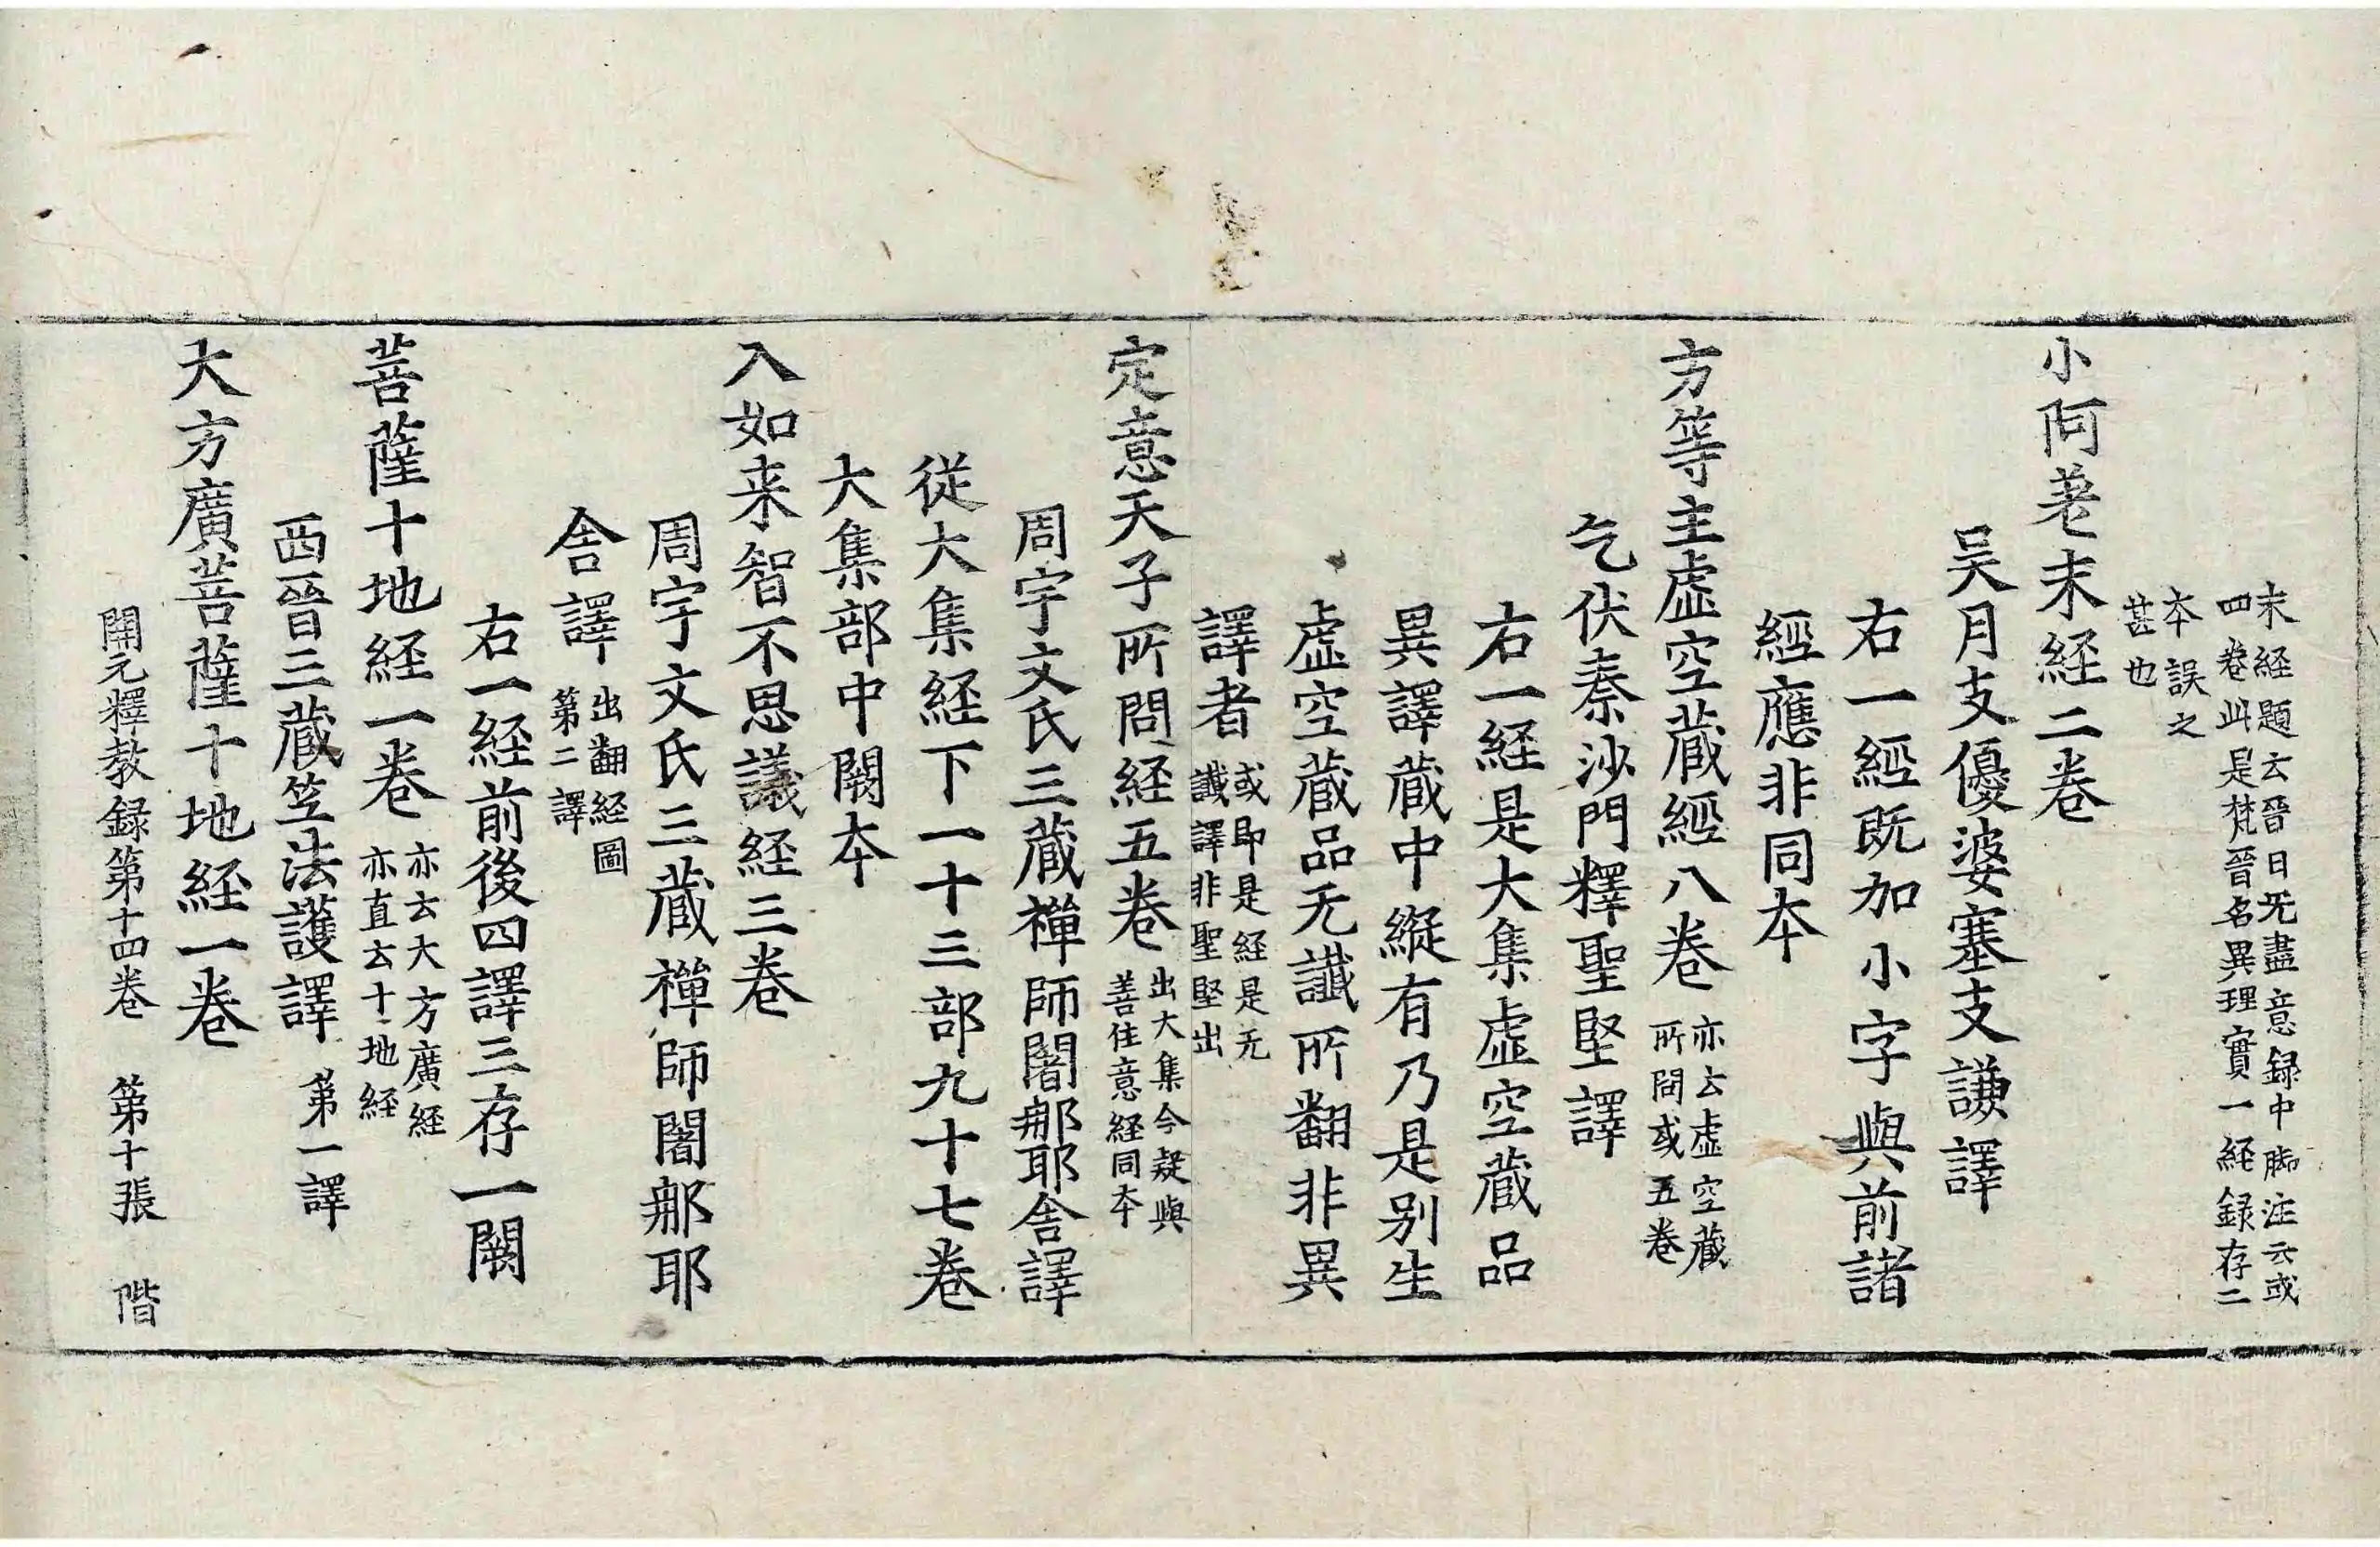 末経題云晉曰无盡意録中脚注云或
四卷此是梵晉名異理實一経録存二
本誤之
甚也
小阿差末経二卷
吴月支優婆塞支謙譯
右一經既加小字與前諸
經應非同本
方等主虛空藏經八卷 亦云虛空藏
所問或五卷
乞伏秦沙門釋聖堅譯
右一経是大集虛空藏品
異譯藏中縱有乃是别生
虛空藏品无讖所翻非異
譯者 或即是経是无
讖譯非聖堅出
定意天子所問経五卷 出大集今疑與
善住意経同本
周宇文氏三藏禪師闍那耶舍譯
從大集経下一十三部九十七卷
大集部中闕本
入如来智不思議経三卷
周宇文氏三藏禪師闍那耶
舍譯 出翻経圖
第二譯
右一経前後四譯三存一闕
菩薩十地経一卷 亦云大方廣経
亦直云十地経
西晉三藏笠法護譯 第一譯
大方廣菩薩十地経一卷
開元釋教録第十四卷 第十張 階